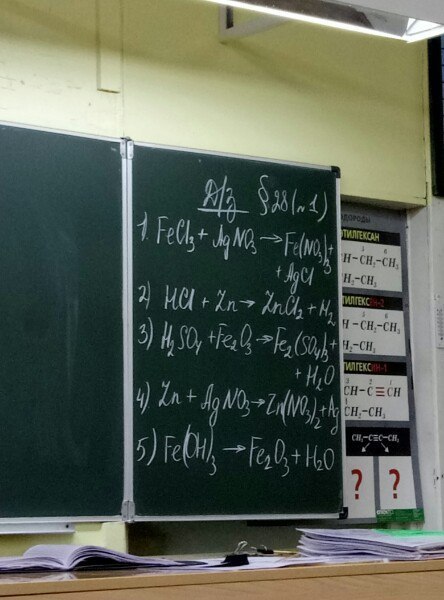 Д/з § 28 (№1)
1. FeCl₃ + AgNO₃ → Fe(NO₃)₃ +
+ AgCl
2) HCl + Zn → ZnCl₂ + H₂
3) H₂SO₄ + Fe₂O₃ → Fe₂(SO₄)₃ +
+ H₂O
4) Zn + AgNO₃ → Zn(NO₃)₂ + Ag
5) Fe(OH)₃ → Fe₂O₃ + H₂O
ОДОРОДЫ
ТИЛГЕКСАН
CH–CH₂–CH₃
H₂–CH₃
ТИЛГЕКСИН-2
H₂–CH₃
ТИЛГЕКСИН-1
CH–C≡CH
CH₂–CH₃
CH₃–C≡C–CH₃
? ?